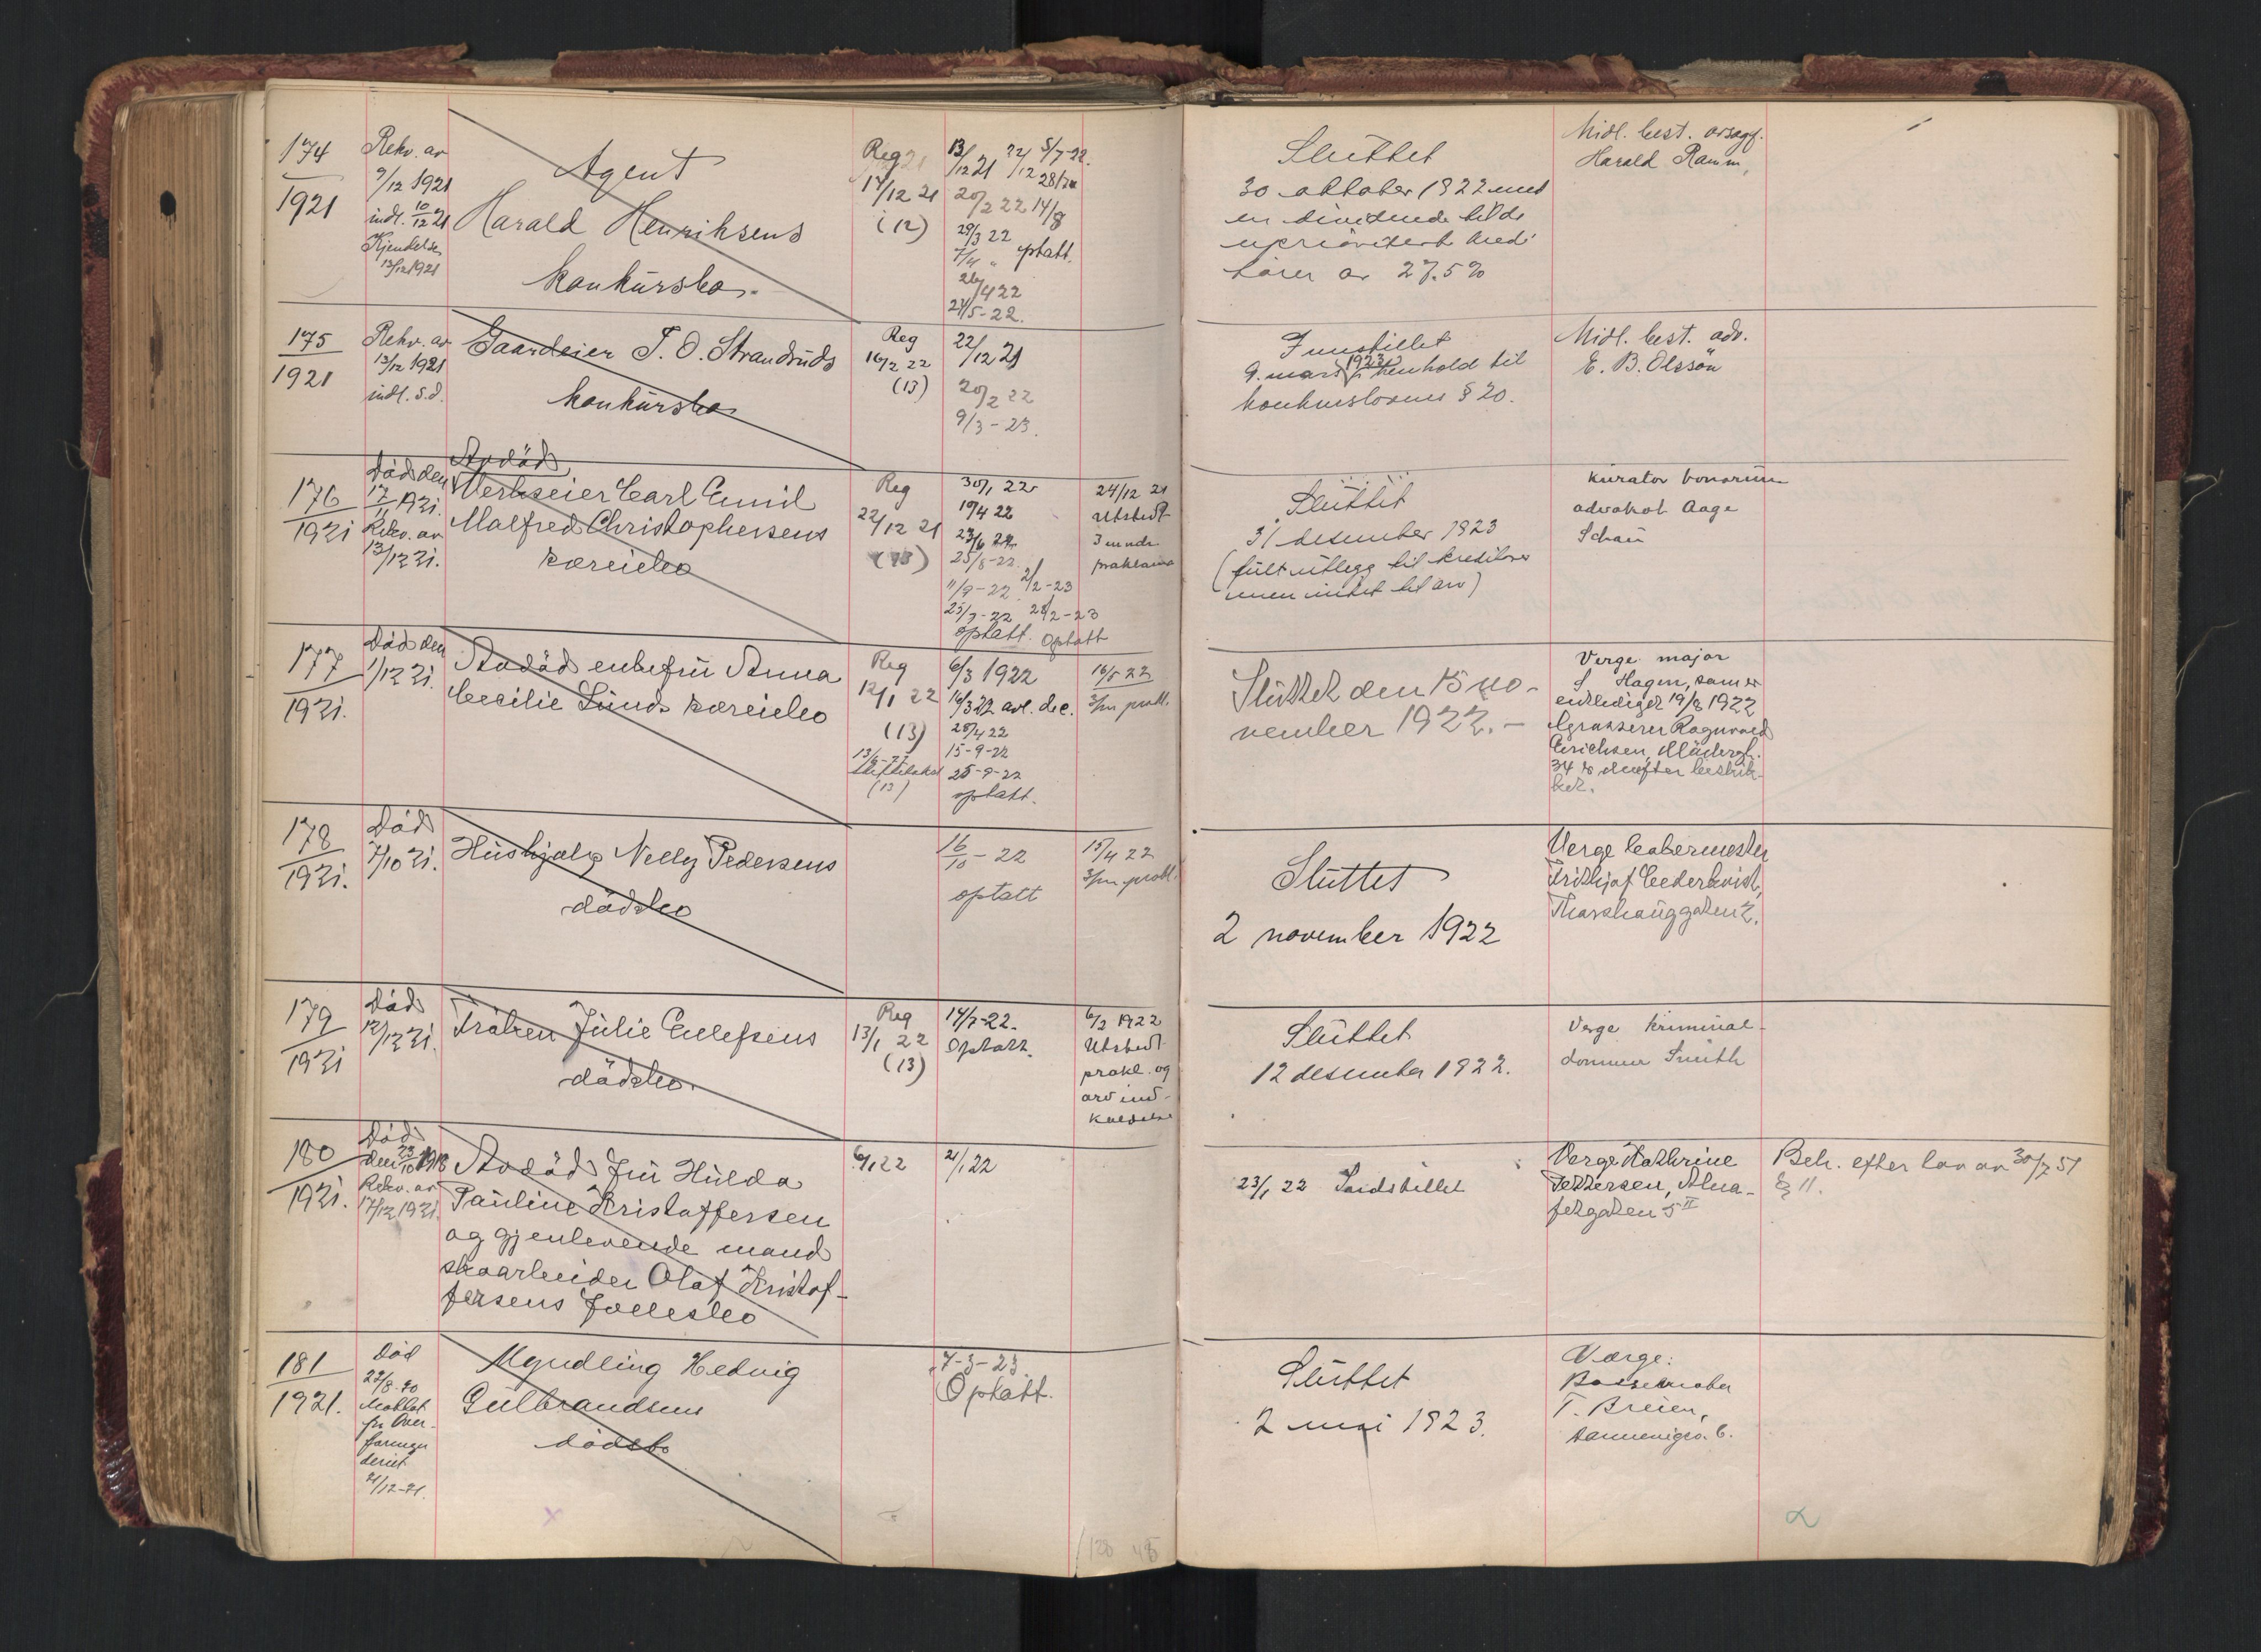 174
1921
Rekv. av
9/12 1921
indl. 10/12 21
Kjendelse
13/12 1921
Agent
Harald Henriksens
konkursbo.
Reg
14/12 21
(12)
13/12 21
20/2 22 14/8
29/3 22
7/4 " optatt.
26/4 22
24/5-22.
5/7-22.
Sluttet
30 oktober 1922 med
en dividende til de
uprioritert kredi-
torer av 27.5%
Midl. best. orsagf.
Harald Ramm,
175
1921
Rekv. av
13/12 1921
indl. s.d.
Gaardeier T. O. Strandruds
konkursbo
Reg
16/2 22
(13)
22/12 21
20/2 22
9/3-23.
Innstillet
9. mars 1923 i henhold til
konkurslovens § 20.
Midl. best. adv.
E. B. Olssön
176
1921
Död den
17/11 1921.
Rekv. av
13/12 21.
Avdöd
Verkseier Carl Emil
Malfred Christophersens
særeiebo
Reg
22/12 21
(13)
30/1 22
19/4 22
23/6 22
25/8-22
11/9-22 2/2-23
25/9-22 28/2-23
optatt. Optatt
24/12 21
Utstedt
3 mndr
proklama
Sluttet
31 desember 1923
(fult utlegg til kreditorer
men intet til arv)
Kurator bonorum
advokat Aage
Schou
177
1921.
Död den
1/12 21.
Avdöd enkefru Anna
Cecilie Lunds særeiebo
Reg
12/1 22
(13)
6/3 1922
16/3 22 avl. dec.
28/4 22
15-9-22
25-9-22
optatt.
16/5 22
3/m prokl.
Sluttet den 15 no-
vember 1922.-
Verge major
Hagen, som er
entlediget 19/8 1922
Grosserer Ragnvald
Erichsen,
34 er derefter beskik-
ket.
178
1921.
Död
7/10 21.
Hushjælp Nelly Pedersens
dödsbo
16/10-22
optatt
15/4 22
3/m prokl.
Sluttet
2 november 1922
Verge
Frithjof Cederkvist,
179
1921
Död
12/12 21.
Fröken Julie Ellefsens
dödsbo.
Reg
13/1 22
(13)
14/7-22.
Optatt.
6/2 1922
Utstedt
prokl. og
arv ind-
kaldelse
Sluttet
12 desember 1922.
Verge kriminal-
dommer Smith
180
1921.
Död
den 23/10 1918
Rekv. av
17/12 1921.
Avdöd fru Hulda
Pauline Kristoffersen
og gjenlevende mand
skoarbeider Olaf Kristof-
fersens fællesbo
9/1 22
21/1 22
23/1 22 Indstillet
Verge Kathrine
Pettersen, Alna-
fetgaten 5 II
Beh. efter lov av 30/7 51
§ 11.
181
1921.
Död
22/8-20
Mottat
fra Over-
formyn
deriet
21/12-21.
Myndling Hedvig
Gulbrandsens
dödsbo
7-3-23
Optatt.
Sluttet
2 mai 1923.
Værge:
T. Breien,